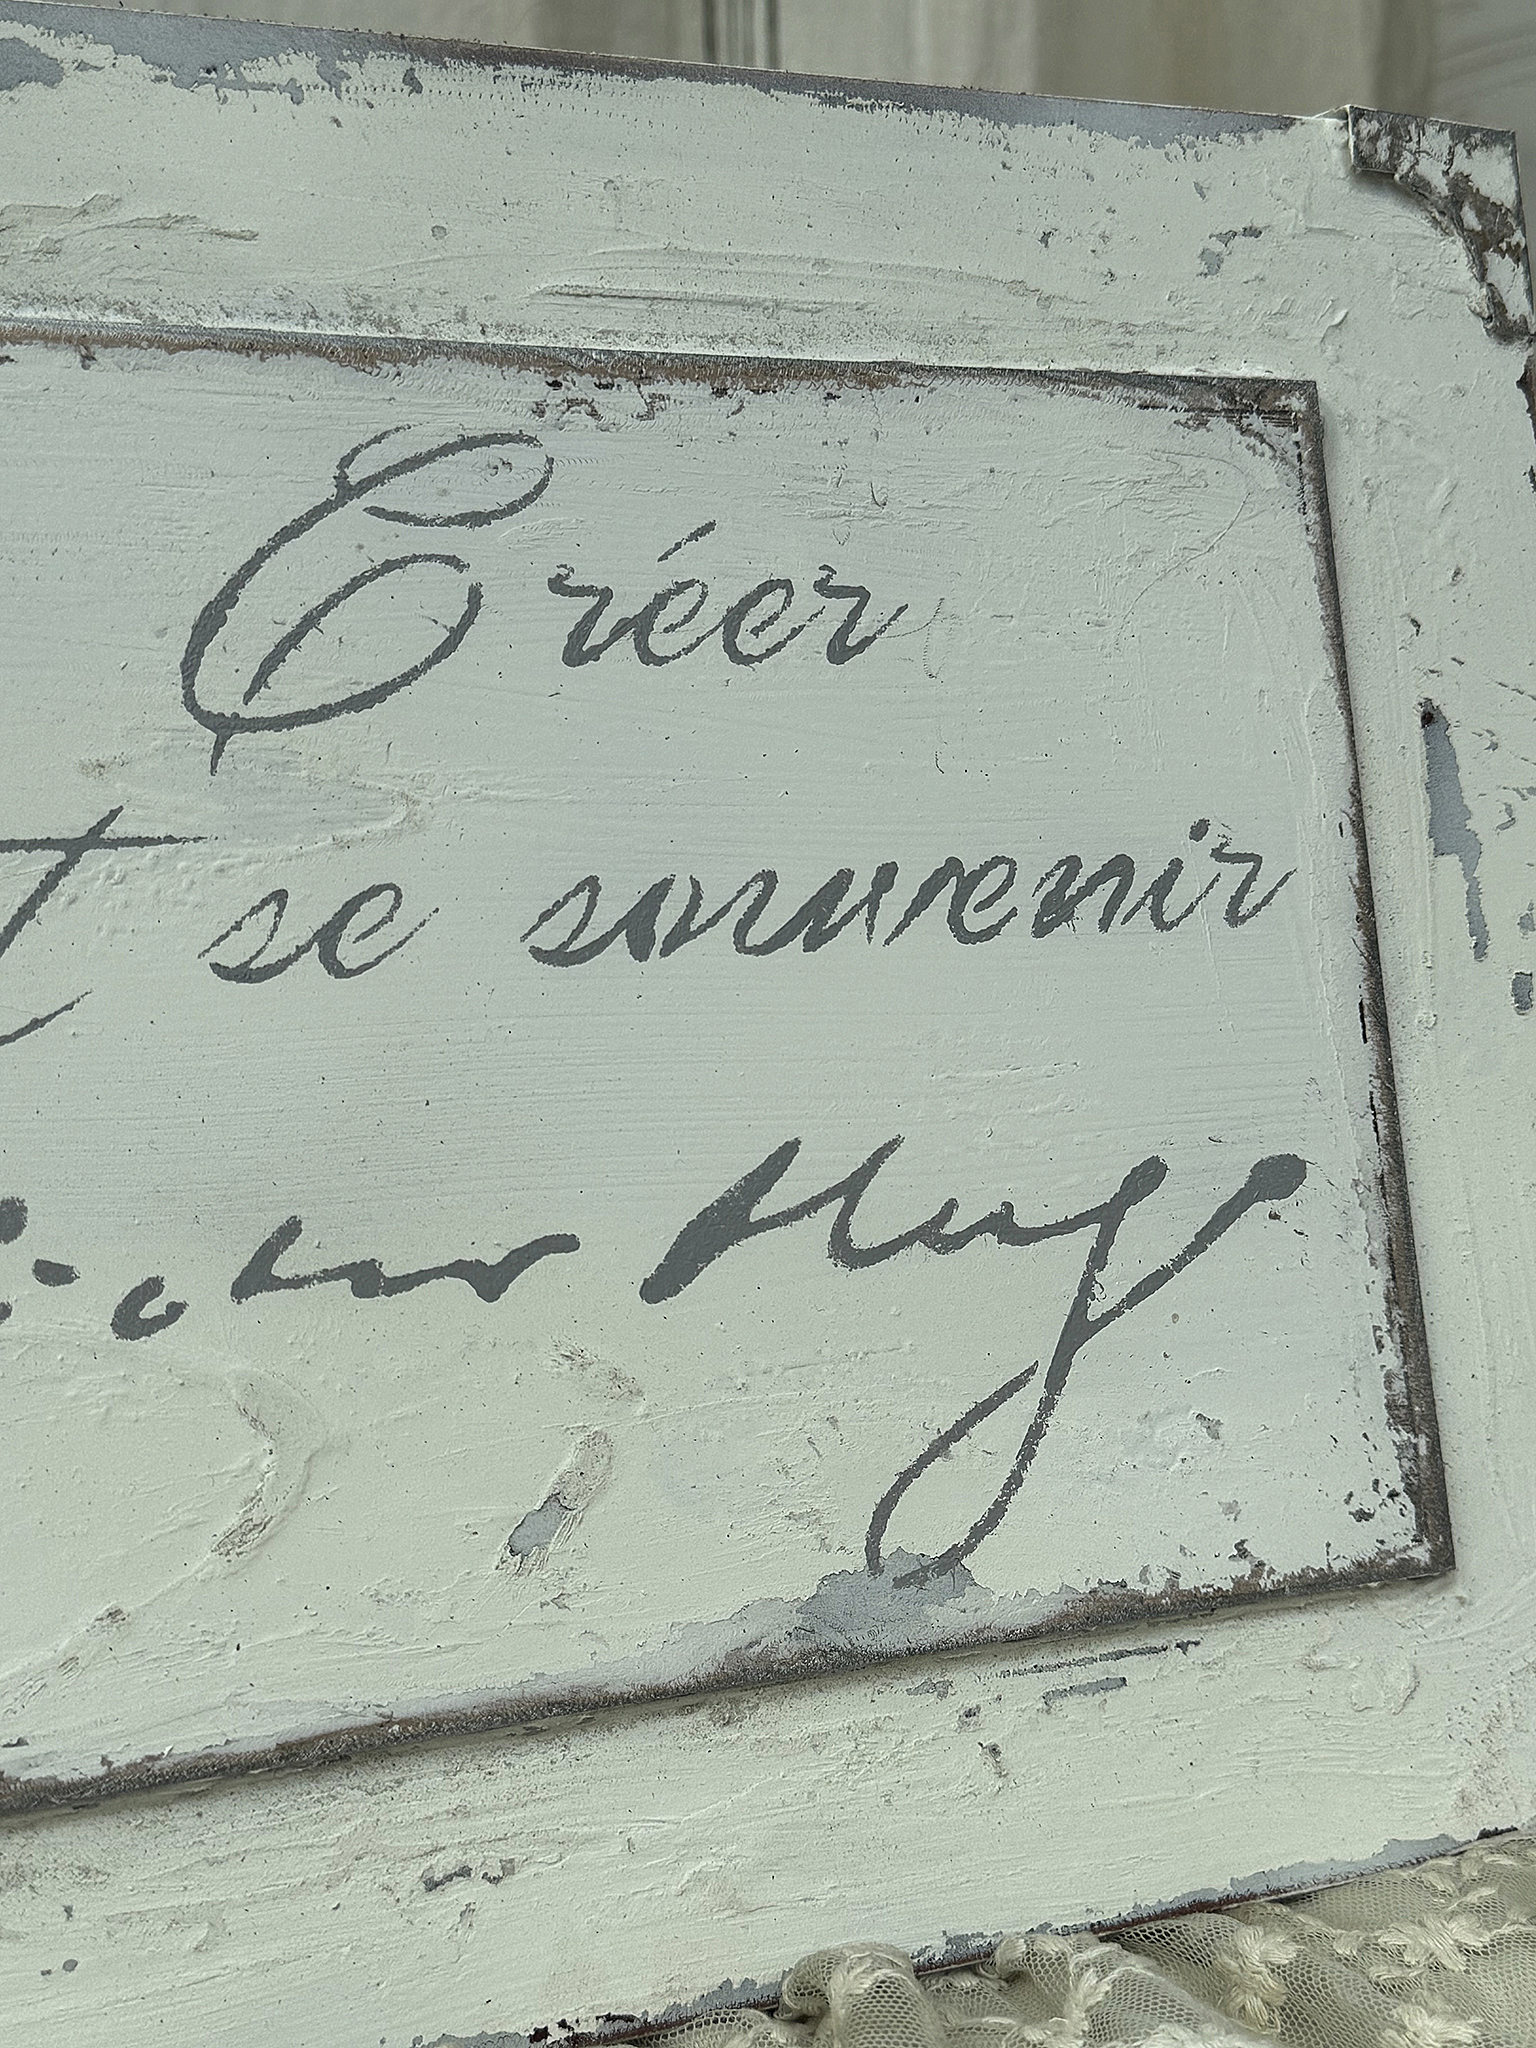 Créer
t se souvenir
ictor Hugo